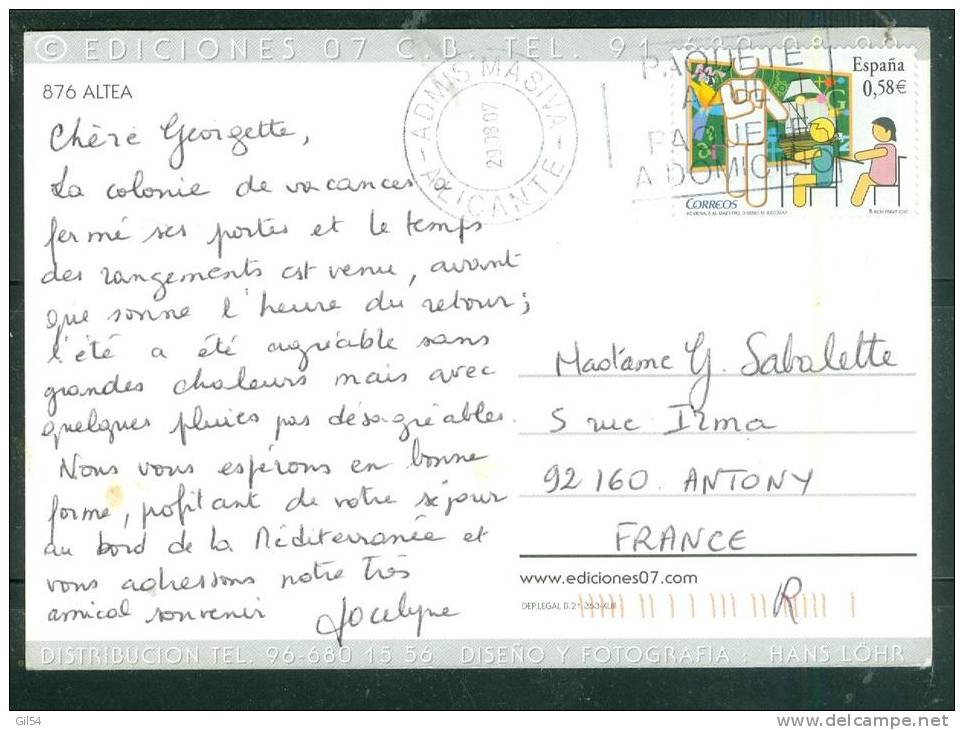 © EDICIONES 07 C.B. TEL. 91 680 08 09
876 ALTEA
ADMIS MASIVA
29.08.07
ALICANTE
PAQUETE
AZUL
PAQUETE
A DOMICILIO
España
0,58€
CORREOS
Chère Georgette,
La colonie de vacances a
fermé ses portes et le temps
des rangements est venu, avant
que sonne l'heure du retour ;
l'été a été agréable sans
grandes chaleurs mais avec
quelques pluies pas désagréables.
Nous vous espérons en bonne
forme, profitant de votre séjour
au bord de la Méditerranée et
vous adressons notre très
amical souvenir Jocelyne
Madame G. Sabalette
5 rue Irma
92160. ANTONY
FRANCE
www.ediciones07.com
R
DISTRIBUCION TEL. 96-680 15 56 DISEÑO Y FOTOGRAFIA : HANS LÖHR
Gil54
www.delcampe.net